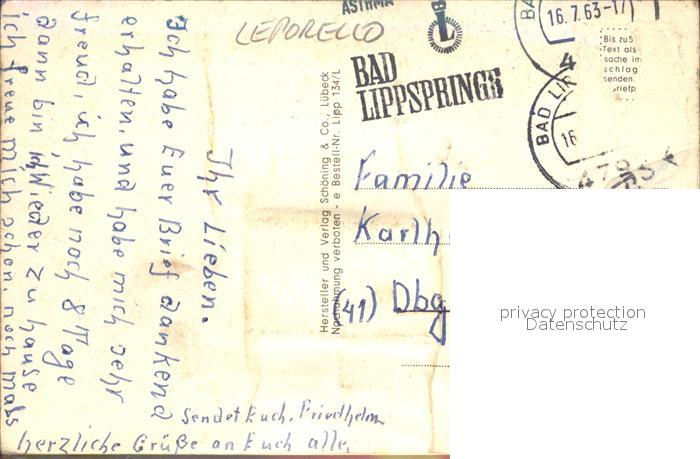 LEPORELLO
ASTHMA
BAD
LIPPSPRINGE
16.7.63-17
BAD LIP
16
Bis zu 5
Text als
sache im
schlag
senden.
Briefp
Hersteller und Verlag Schöning & Co., Lübeck
Nachahmung verboten - e Bestell-Nr. Lipp 134/L
Ihr Lieben.
Ich habe Euer Brief dankend
erhalten. und habe mich sehr
freud, ich habe noch 8 Tage
dann bin ich wieder zu hause
ich freue mich schon. noch mals
herzliche Grüße an Euch alle,
Sendet Euch. Friedhelm
Familie
Karlh
(41) Dbg
privacy protection
Datenschutz